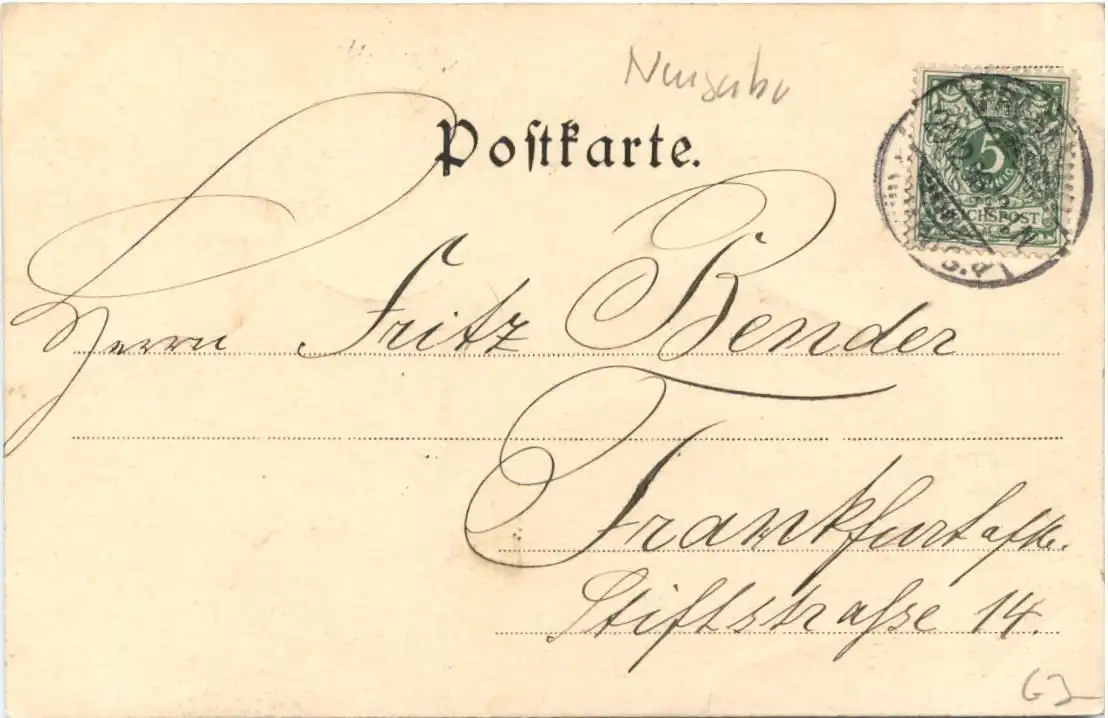 Postkarte.
5
PFENNIG
REICHSPOST
Herrn Fritz Bender
Frankfurt a/M.
Stiftstraße 14.